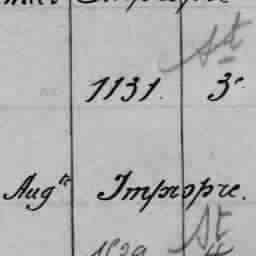 St
1131. 3.
Aug.te Impropre.
St